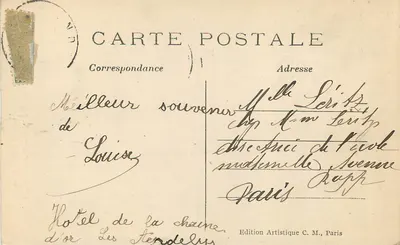 CARTE POSTALE
Correspondance
Adresse
Meilleur souvenir
de
Louise
Hotel de la chaine
d'or Les Andelys
Melle Léritz
chez Mme Leritz
directrice de l'école
maternelle Avenue
Rapp
Paris
Edition Artistique C. M., Paris